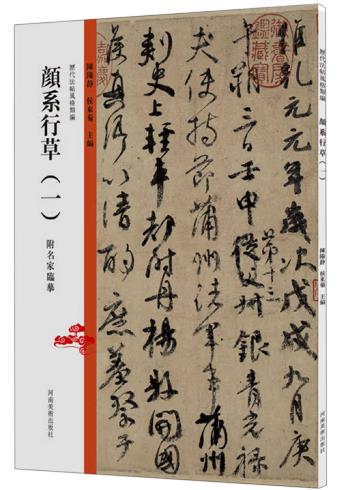 歷代法帖風格類編
顏系行草（一）
附名家臨摹
陳陽靜 侯東菊 主編
河南美術出版社
乾元元年歲次戊戌九月庚
午朔三日壬申第十三叔銀青光祿
夫使持節蒲州諸軍事蒲州
刺史上輕車都尉丹楊縣開國
侯真卿以清酌庶羞祭于
歷代法帖風格類編
顏系行草（一）
陳陽靜 侯東菊 主編
河南美術出版社